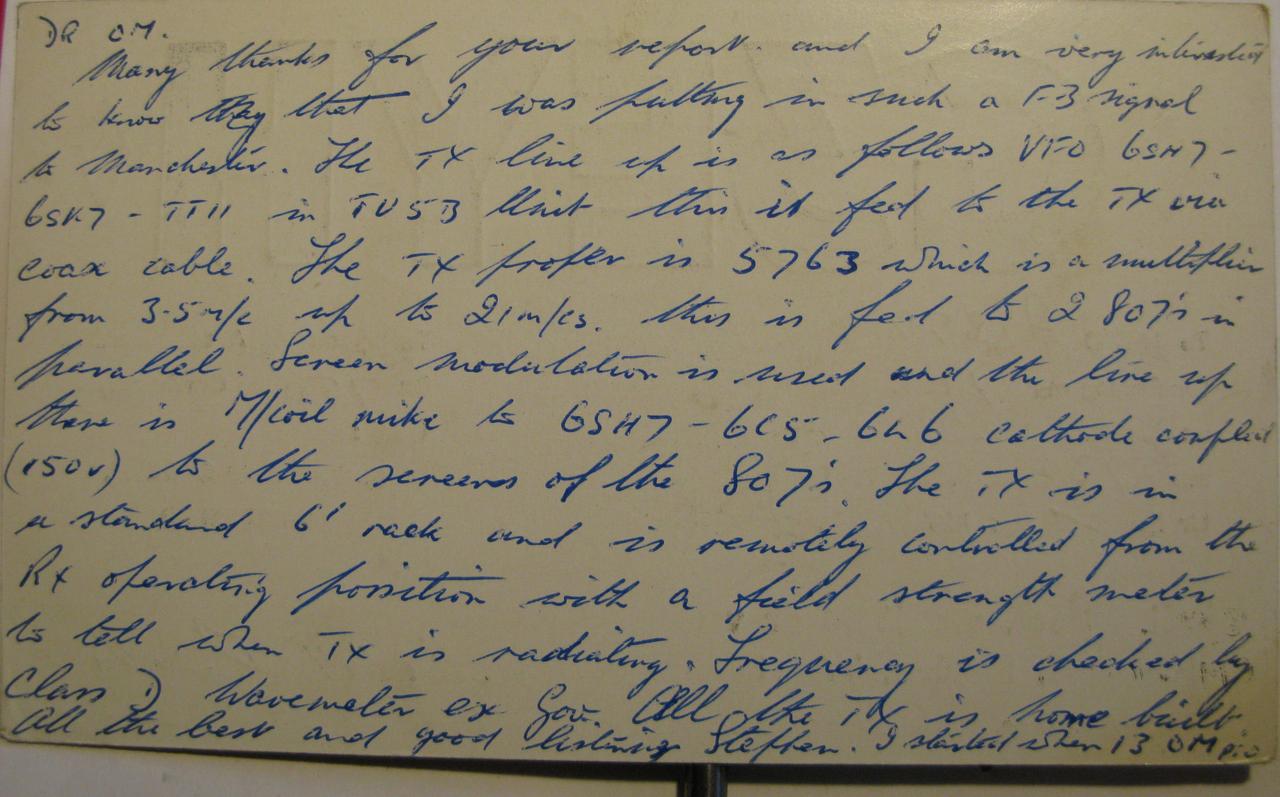 DR OM.
Many thanks for your report. and I am very interested
to know that I was putting in such a signal
to Manchester. The TX line up is as follows VFO 6SH7 -
6SK7 - TT11 in TU5B Unit this is fed to the TX via
coax cable. The TX proper is 5763 which is a multiplier
from 3.5 m/c up to 21 m/cs. this is fed to 2 807's in
parallel. Screen modulation is used and the line up
there is M/coil mike to 6SH7 - 6C5 - 6L6 cathode coupled
(150v) to the screens of the 807's. The TX is in
a standard 6' rack and is remotely controlled from the
RX operating position with a field strength meter
to tell when TX is radiating. Frequency is checked by
Class D Wavemeter ex Gov. All the TX is home built
All the best and good listening Stephen. I started when 13 OM